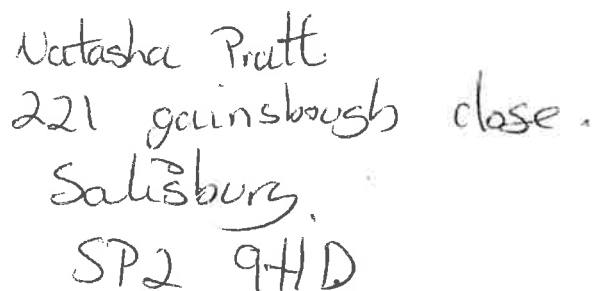 Natasha Pratt
221 gainsbough close.
Salisbury.
SP2 9HD